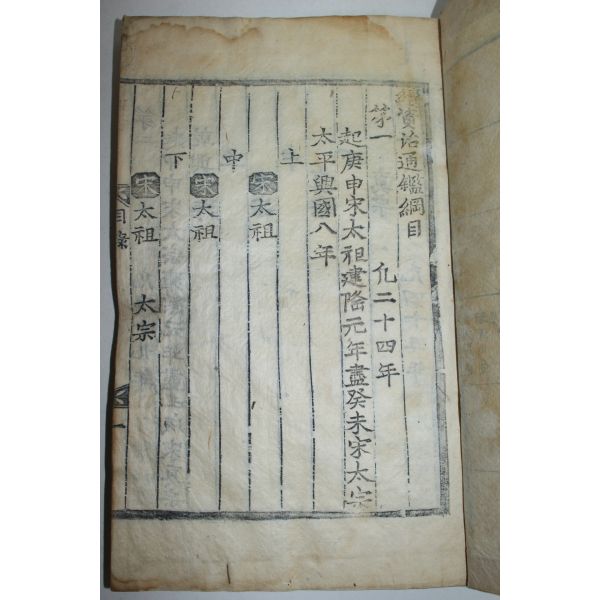 續資治通鑑綱目
第一 凡二十四年
起庚申宋太祖建隆元年盡癸未宋太宗
太平興國八年
上
宋太祖
中
宋太祖
下
宋太祖 太宗
目錄 一